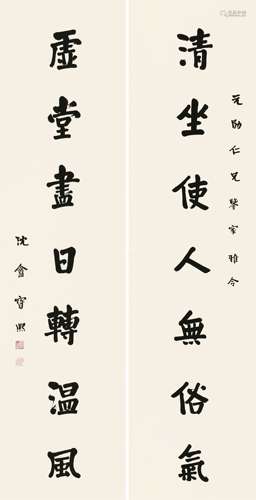 元勛仁兄鑒家雅令
清坐使人無俗氣
虛堂盡日轉温風
沈盦寶熙